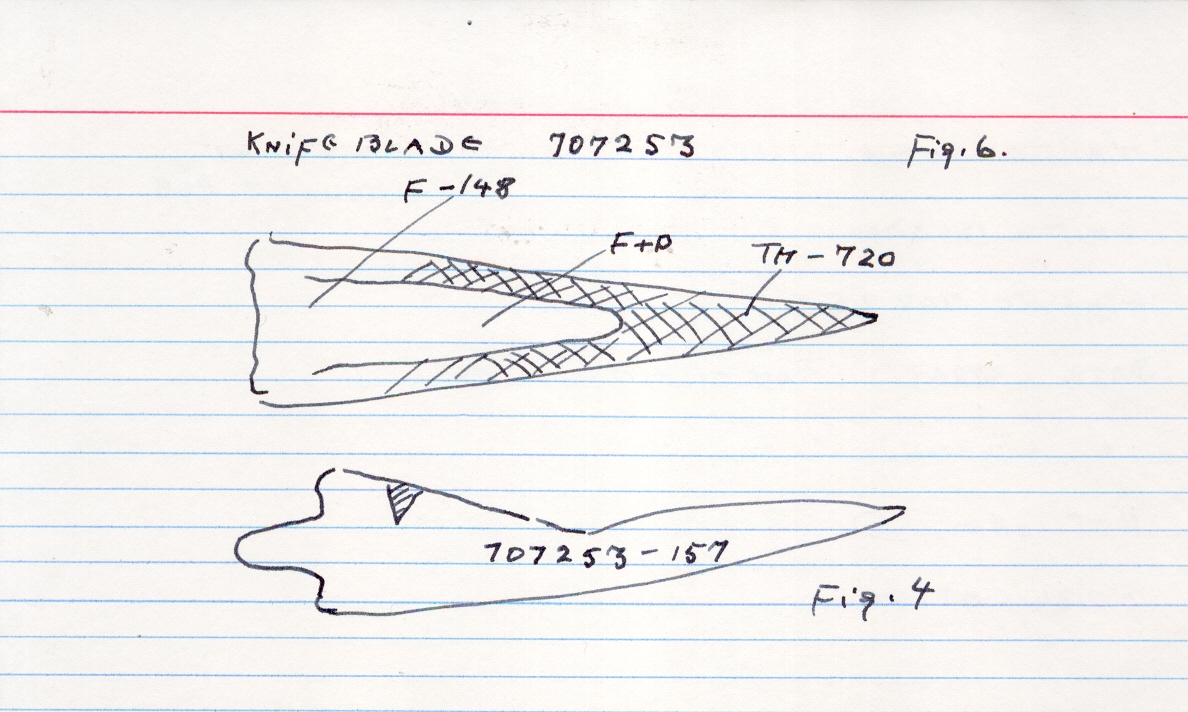 KNiFE BLADE 707253 Fig. 6.
F-148
F+P
TH-720
707253-157
Fig. 4